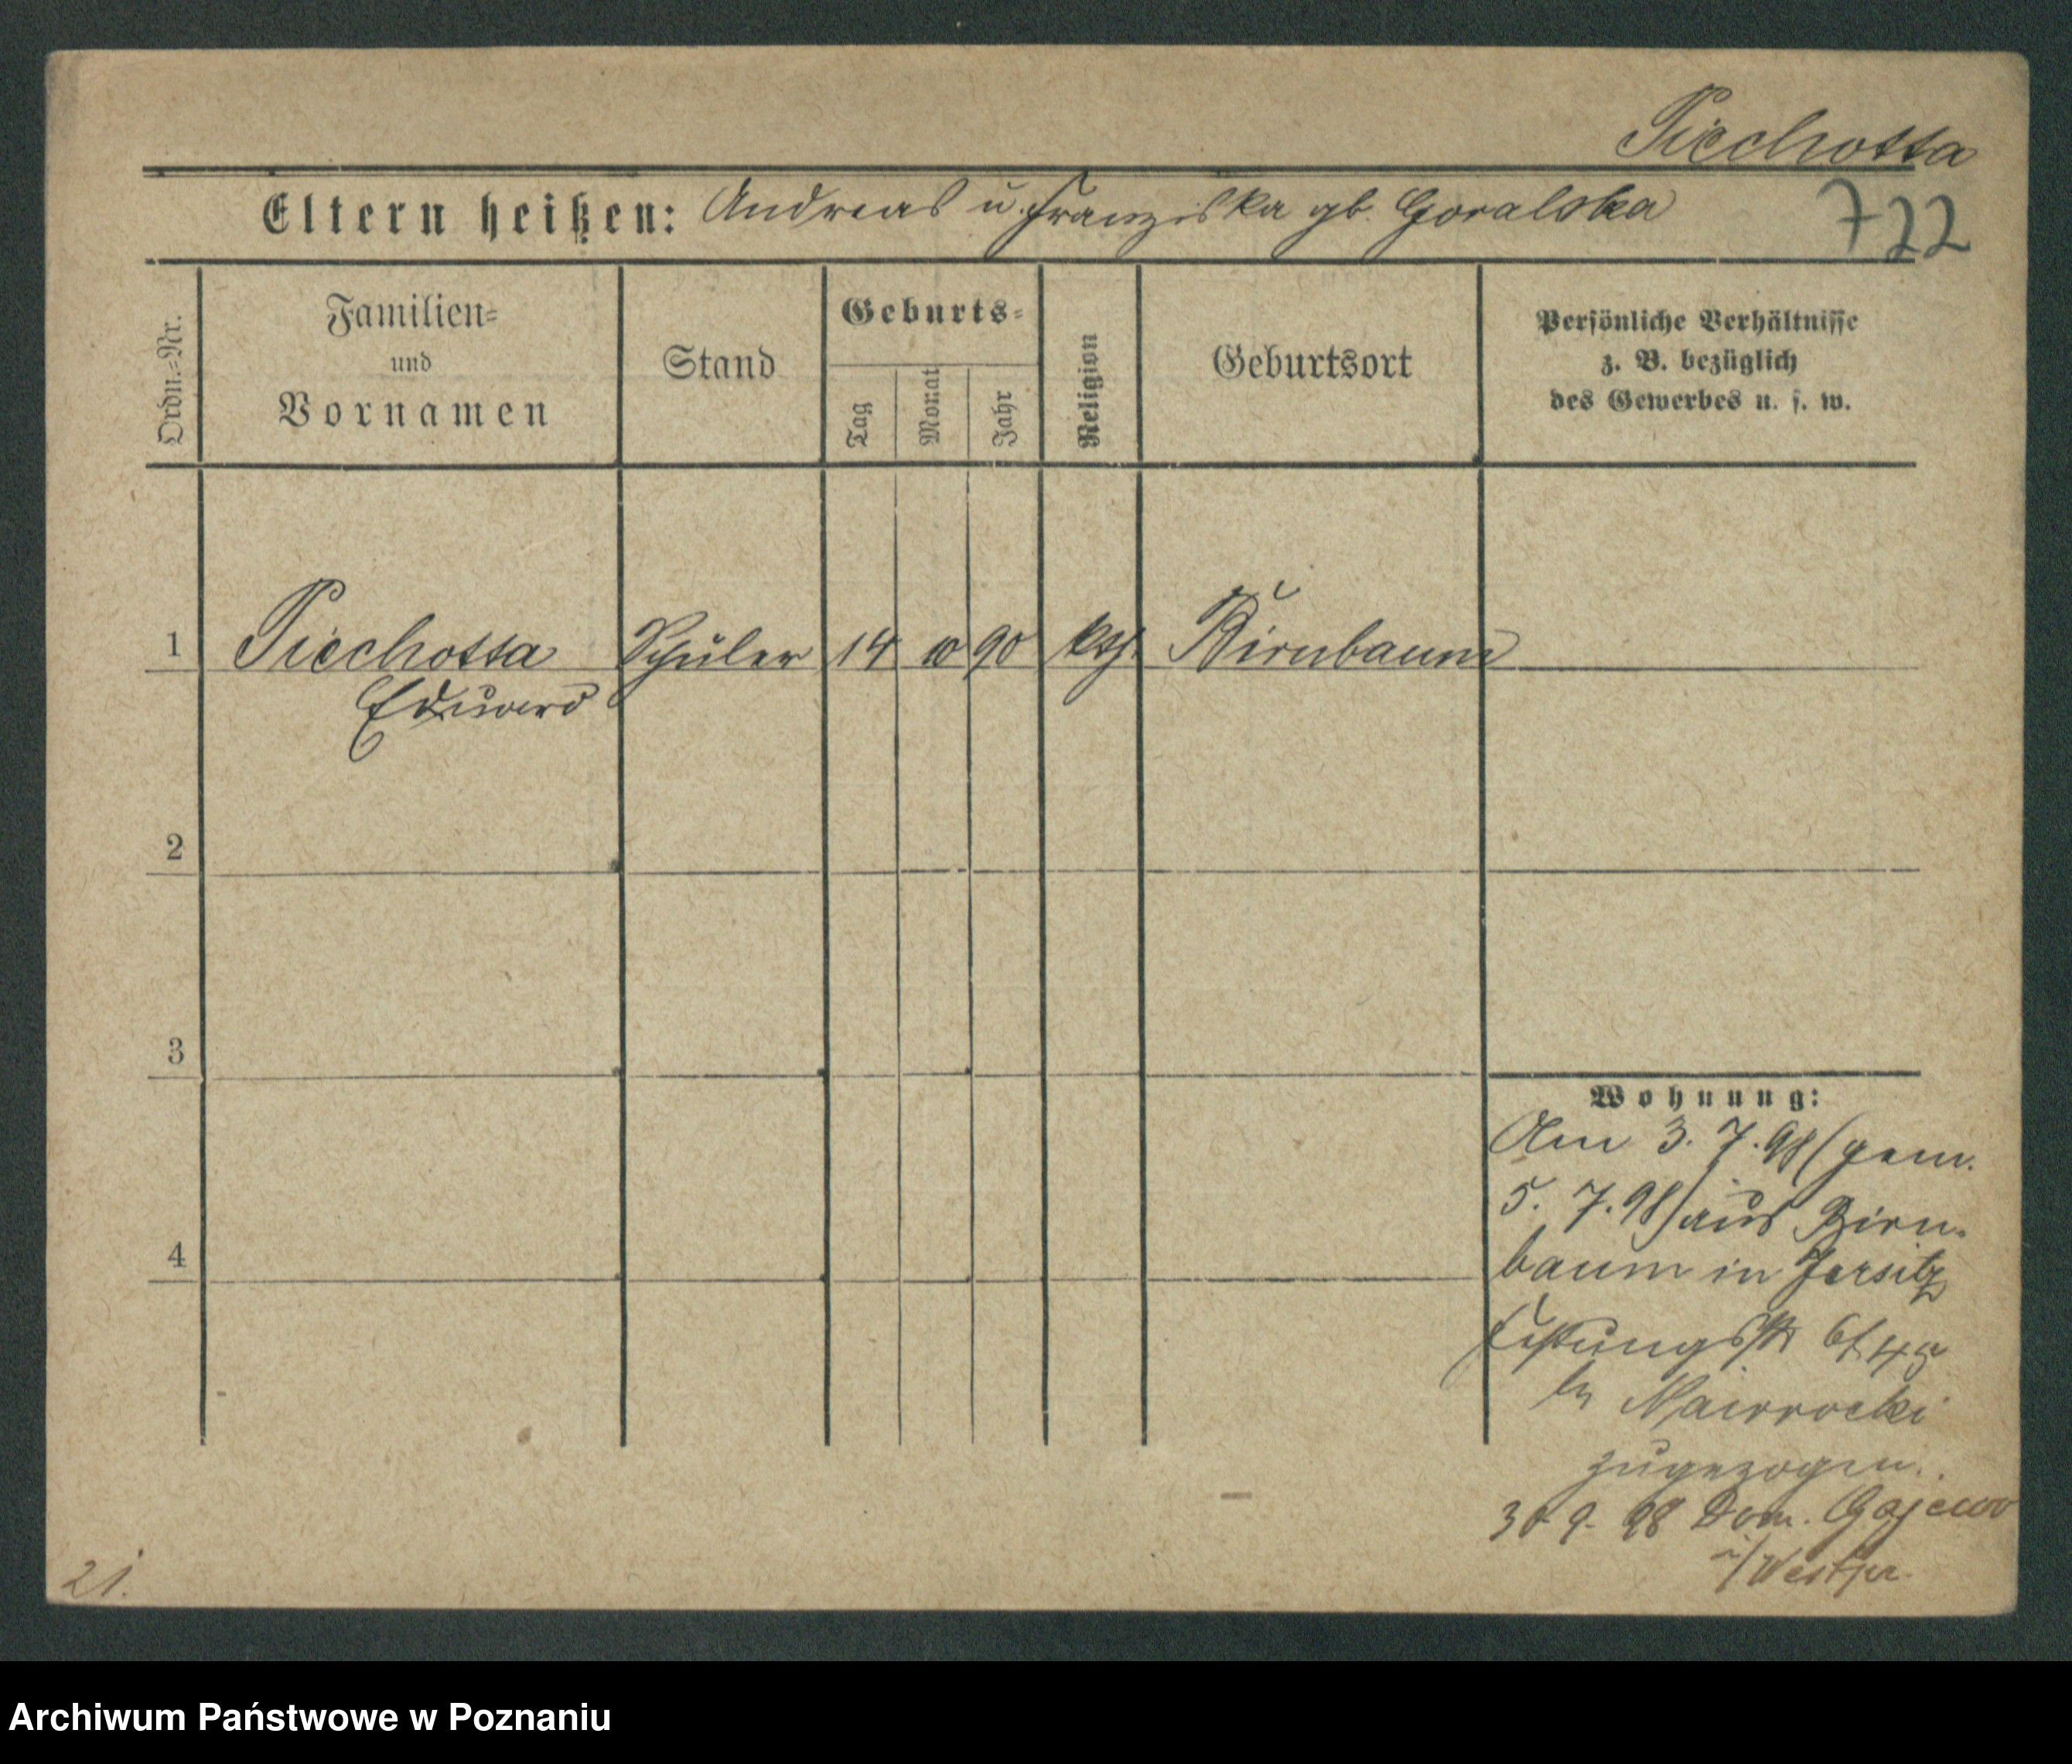 Piechotta
Eltern heißen: Andreas u. Franziska gb. Goralska
722
Ordn.=Nr.
Familien=
und
Vornamen
Stand
Geburts=
Tag
Monat
Jahr
Religion
Geburtsort
Persönliche Verhältnisse
z. B. bezüglich
des Gewerbes u. s. w.
1 Piechotta Schüler 14 10 90 kth. Birnbaum
Eduard
2
3
4
Wohnung:
Am 3. 7. 98 (gem.
5. 7. 98) aus Birn-
baum in Jersitz
zugezogen.
30 9. 98 Dom. Gajewo
i/Westpr.
21.
Archiwum Państwowe w Poznaniu